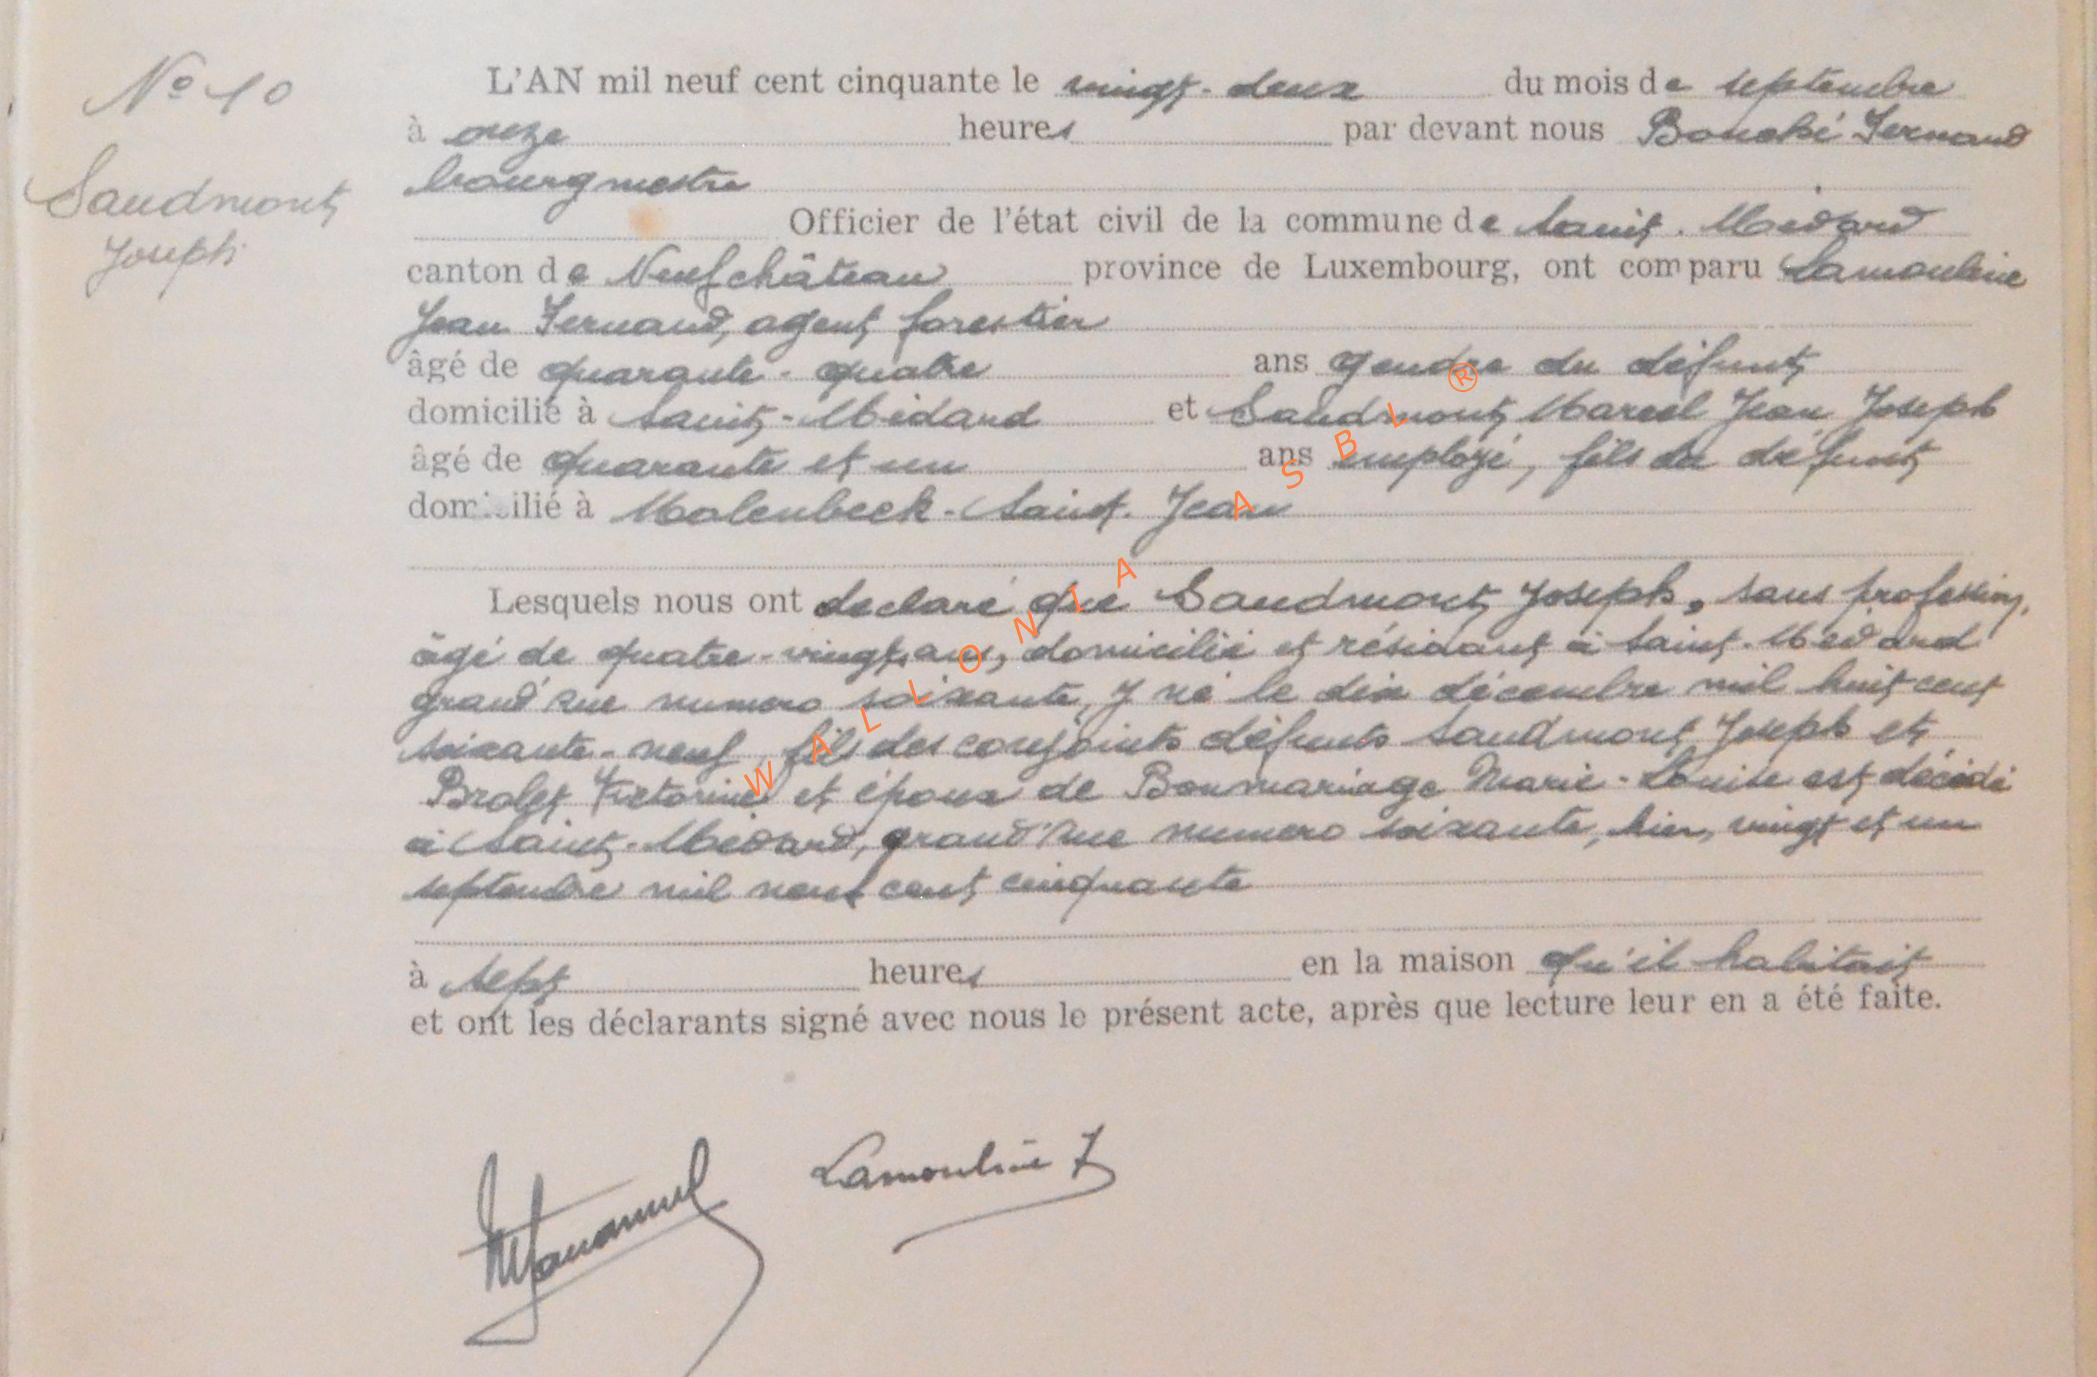 N° 10
Saudmont
Joseph
L'AN mil neuf cent cinquante le vingt-deux du mois de septembre
à onze heures par devant nous Bouché Fernand
bourgmestre
Officier de l'état civil de la commune de Saint-Médard
canton de Neufchâteau province de Luxembourg, ont comparu Lamouline
Jean Fernand, agent forestier
âgé de quarante-quatre ans gendre du défunt
domicilié à Saint-Médard et Saudmont Marcel Jean Joseph
âgé de quarante et un ans employé, fils du défunt
domicilié à Molenbeek-Saint-Jean
Lesquels nous ont declaré que Saudmont Joseph, sans profession,
âgé de quatre-vingt ans, domicilié et résidant à Saint-Médard
grand'rue numero soixante, y né le dix décembre mil huit cent
soixante-neuf, fils des conjoints défunts Saudmont Joseph et
Brolet Victorine et époux de Bonmariage Marie-Louise est décédé
à Saint-Médard, grand'rue numero soixante, hier, vingt et un
septembre mil neuf cent cinquante
à sept heures en la maison qu'il habitait
et ont les déclarants signé avec nous le présent acte, après que lecture leur en a été faite.
Lamouline F
WALLONIA ASBL ®